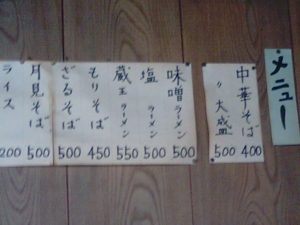 メニュー
中華そば 400
〃 大盛 500
味噌ラーメン 500
塩ラーメン 500
蔵王ラーメン 550
もりそば 450
ざるそば 500
月見そば 500
ライス 200